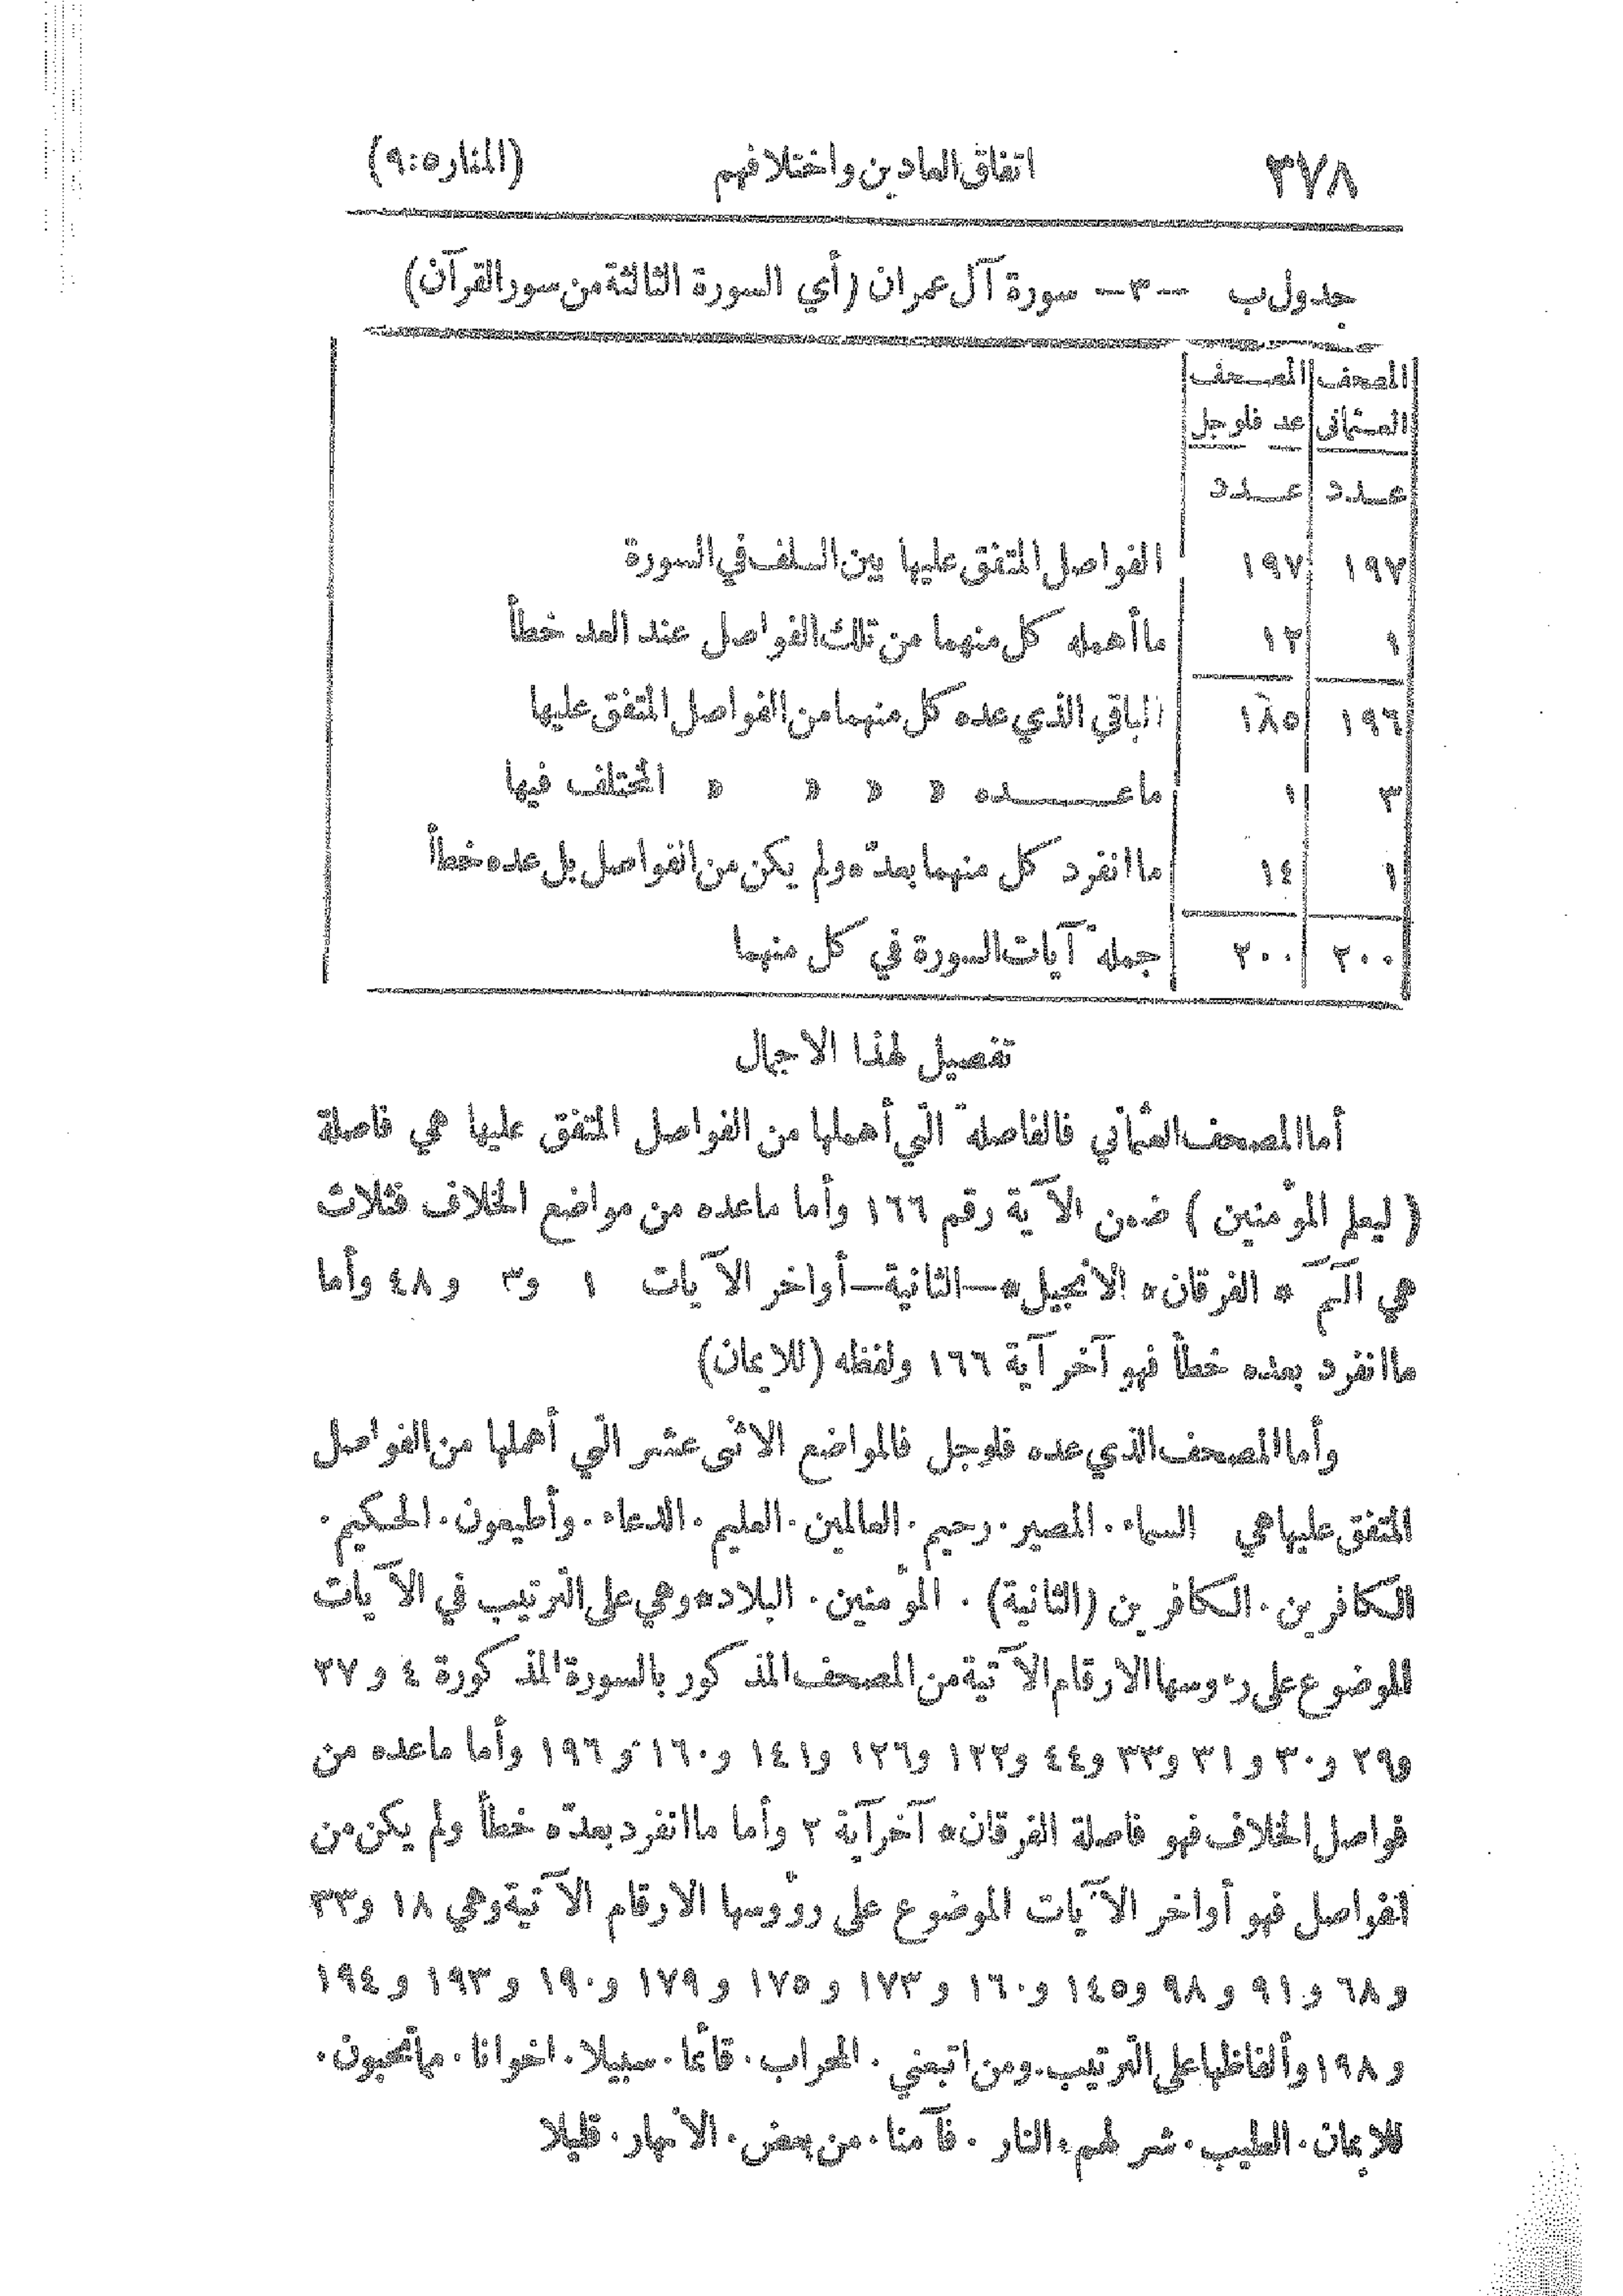 ٣٧٨ اتفاق العادين واختلافهم (المنار٥:٩)
جدول ب — ٣ — سورة آل عمران (أي السورة الثالثة من سور القرآن)
المصحف المصحف
العثماني عد فلوجل
عدد عدد
١٩٧ ١٩٧ الفواصل المتفق عليها بين السلف في السورة
١ ١٢ ما أهمله كل منهما من تلك الفواصل عند العد خطأً
١٩٦ ١٨٥ الباقي الذي عده كل منهما من الفواصل المتفق عليها
٣ ١ ماعـــده » » » » المختلف فيها
١ ١٤ ما انفرد كل منهما بعدّه ولم يكن من الفواصل بل عده خطأً
٢٠٠ ٢٠٠ جملة آيات السورة في كل منهما
تفصيل لهذا الاجمال
أما المصحف العثماني فالفاصلة التي أهملها من الفواصل المتفق عليها هي فاصلة
( ليعلم المؤمنين ) ضمن الآية رقم ١٦٦ وأما ماعده من مواضع الخلاف فثلاث
هي الٓمٓ * الفرقان* الانجيل*—الثانية—أواخر الآيات ١ و٣ و ٤٨ وأما
ما انفرد بعده خطأً فهو آخر آية ١٦٦ ولفظه (للايمان)
وأما المصحف الذي عده فلوجل فالمواضع الاثنى عشر التي أهملها من الفواصل
المتفق عليها هي السماء. المصير. رحيم. العالمين. العليم. الدعاء. وأطيعون. الحكيم.
الكافرين. الكافرين (الثانية). المؤمنين. البلاد* وهي على الترتيب في الآيات
الموضوع على رءوسها الارقام الآتية من المصحف المذكور بالسورة المذكورة ٤ و ٢٧
و٢٩ و٣٠ و٣١ و٣٣ و٤٤ و١٢٣ و١٢٦ و١٤١ و١٦٠ و١٩٦ وأما ماعده من
فواصل الخلاف فهو فاصلة الفرقان* آخر آية ٢ وأما ما انفرد بعدّه خطأً ولم يكن من
الفواصل فهو أواخر الآيات الموضوع على رؤوسها الارقام الآتية وهي ١٨ و٣٣
و ٦٨ و ٩١ و ٩٨ و١٤٥ و١٦٠ و ١٧٣ و ١٧٥ و ١٧٩ و١٩٠ و ١٩٣ و ١٩٤
و ١٩٨ وألفاظها على الترتيب. ومن اتبعني. المحراب. قائما. سبيلا. اخوانا. مما تحبون.
للايمان. الطيب. شر لهم. النار. فآمنا. من بعض. الانهار. قليلا